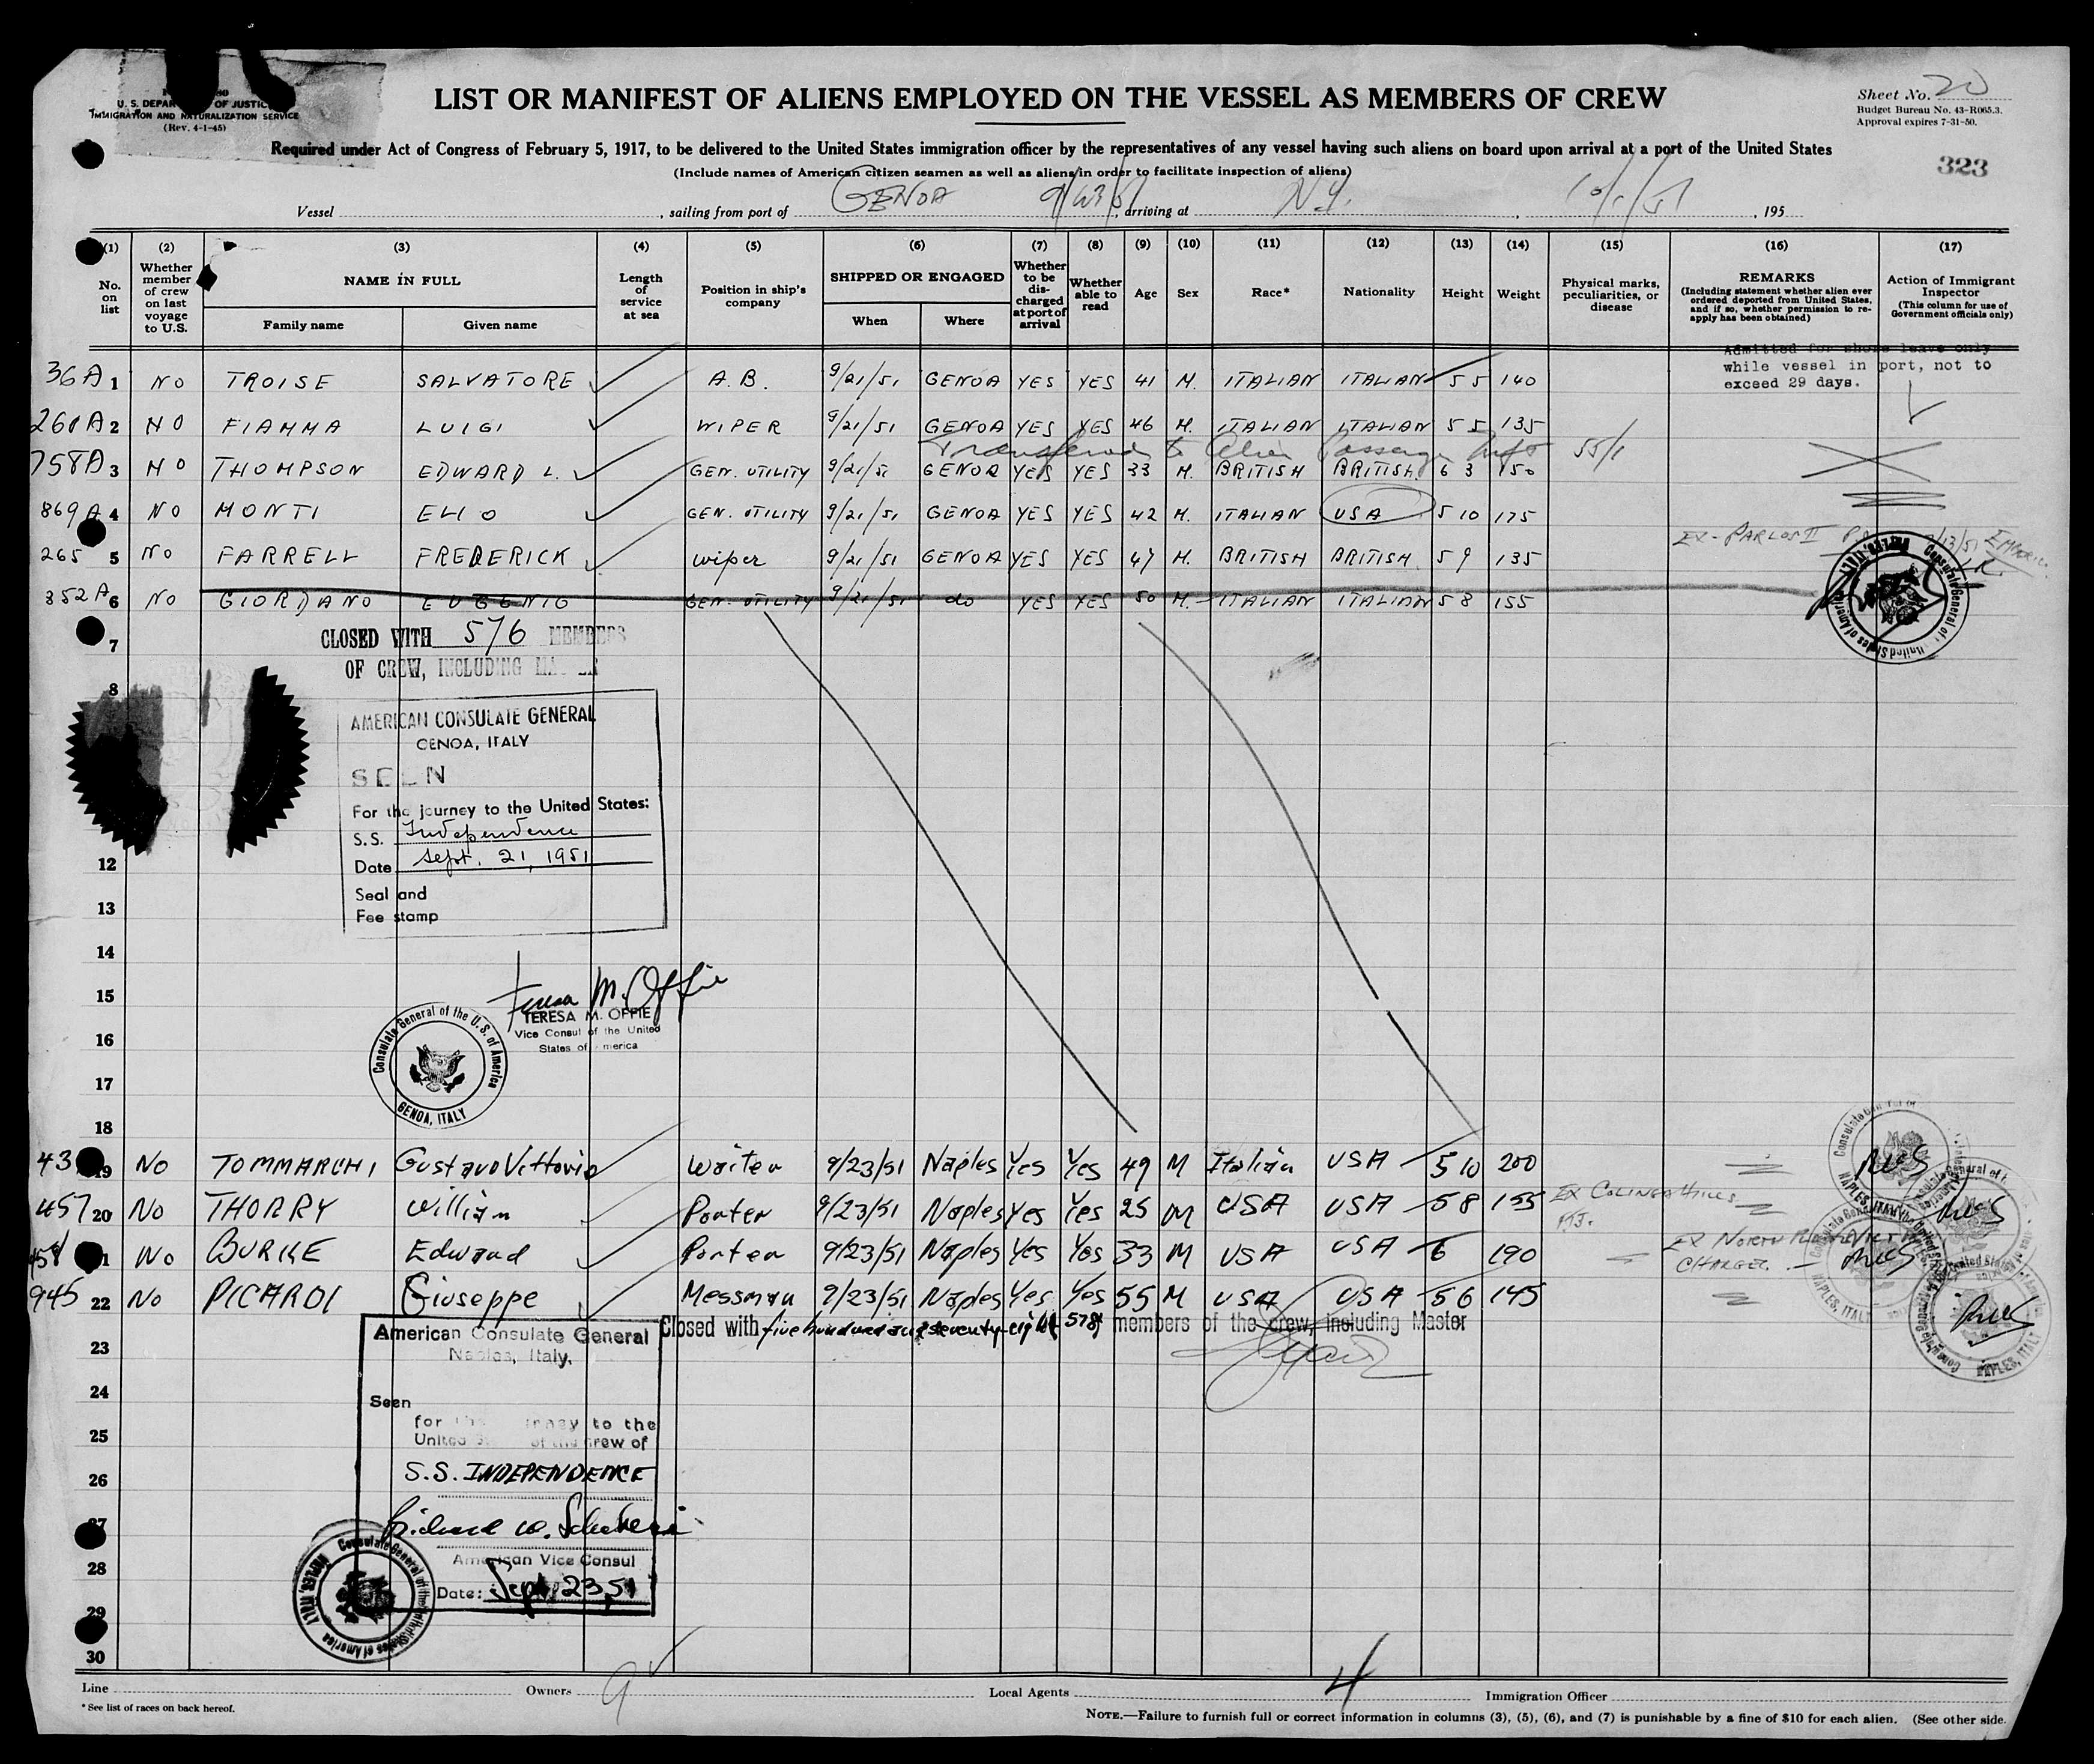 U. S. DEPARTMENT OF JUSTICE
IMMIGRATION AND NATURALIZATION SERVICE
(Rev. 4-1-45)
LIST OR MANIFEST OF ALIENS EMPLOYED ON THE VESSEL AS MEMBERS OF CREW
Sheet No. 20
Budget Bureau No. 43-R065.3.
Approval expires 7-31-50.
Required under Act of Congress of February 5, 1917, to be delivered to the United States immigration officer by the representatives of any vessel having such aliens on board upon arrival at a port of the United States
(Include names of American citizen seamen as well as aliens in order to facilitate inspection of aliens)
323
Vessel , sailing from port of GENOA , arriving at N.Y. , 195
(1) (2) (3) (4) (5) (6) (7) (8) (9) (10) (11) (12) (13) (14) (15) (16) (17)
No. on list
Whether member of crew on last voyage to U.S.
NAME IN FULL
Family name
Given name
Length of service at sea
Position in ship's company
SHIPPED OR ENGAGED
When
Where
Whether to be discharged at port of arrival
Whether able to read
Age
Sex
Race*
Nationality
Height
Weight
Physical marks, peculiarities, or disease
REMARKS
(Including statement whether alien ever ordered deported from United States, and if so, whether permission to re-apply has been obtained)
Action of Immigrant Inspector
(This column for use of Government officials only)
Admitted for shore leave only
while vessel in port, not to
exceed 29 days.
36A 1 NO TROISE SALVATORE A.B. 9/21/51 GENOA YES YES 41 M. ITALIAN ITALIAN 5 5 140
260A 2 NO FIAMMA LUIGI WIPER 9/21/51 GENOA YES YES 46 M. ITALIAN ITALIAN 5 5 135
Transferred to Alien Passenger 55/1
758A 3 NO THOMPSON EDWARD L. GEN. UTILITY 9/21/51 GENOA YES YES 33 M. BRITISH BRITISH 6 3 150
869A 4 NO MONTI ELIO GEN. UTILITY 9/21/51 GENOA YES YES 42 M. ITALIAN USA 5 10 175
265 5 NO FARRELL FREDERICK wiper 9/21/51 GENOA YES YES 47 M. BRITISH BRITISH 5 9 135
352A 6 NO GIORDANO EUGENIO GEN. UTILITY 9/21/51 do YES YES 50 M. ITALIAN ITALIAN 5 8 155
7 CLOSED WITH 576 MEMBERS
OF CREW, INCLUDING
8
AMERICAN CONSULATE GENERAL
GENOA, ITALY
SEEN
For the journey to the United States:
S.S. Independence
12 Date Sept. 21, 1951
13 Seal and
Fee stamp
14
15 Teresa M. Offie
TERESA M. OFFIE
Vice Consul of the United
States of America
Consulate General of the U.S. of America
GENOA, ITALY
16
17
18
43 19 No TOMMARCHI Gustavo Vittorio Waiter 9/23/51 Naples Yes Yes 49 M Italian USA 5 10 200
457 20 No THORRY William Porter 9/23/51 Naples Yes Yes 25 M USA USA 5 8 155
458 No BURKE Edward Porter 9/23/51 Naples Yes Yes 33 M USA USA 6 190
945 22 No PICARDI Giuseppe Messman 9/23/51 Naples Yes Yes 55 M USA USA 5 6 145
Closed with five hundred and seventy-eight 578 members of the crew, including Master
American Consulate General
Naples, Italy.
23
24 Seen
for the journey to the
25 United States of the Crew of
26 S.S. INDEPENDENCE
27 Richard W.
28 American Vice Consul
Date: Sept 23, 51
Consulate General of the United States of America
NAPLES, ITALY
29
30
Line Owners 9 Local Agents 4 Immigration Officer
*See list of races on back hereof.
NOTE.—Failure to furnish full or correct information in columns (3), (5), (6), and (7) is punishable by a fine of $10 for each alien. (See other side.